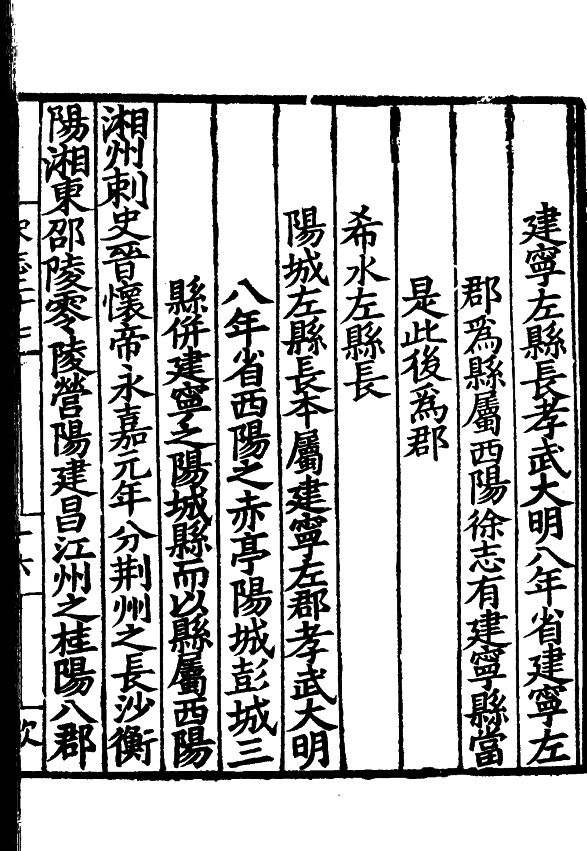 建寧左縣長孝武大明八年省建寧左
郡爲縣屬西陽徐志有建寧縣當
是此後爲郡
希水左縣長
陽城左縣長本屬建寧左郡孝武大明
八年省西陽之赤亭陽城彭城三
縣併建寧之陽城縣而以縣屬西陽
湘州刺史晉懷帝永嘉元年分荆州之長沙衡
陽湘東邵陵零陵營陽建昌江州之桂陽八郡